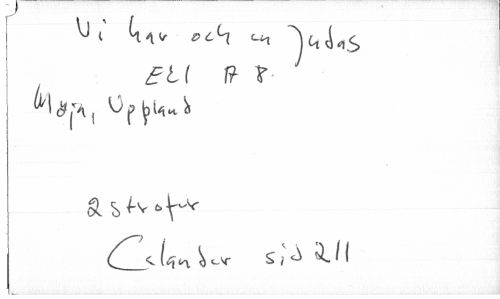 Vi har och en Judas
EEI A 8.
Muja, Uppland
2 strofer
Celander sid 211